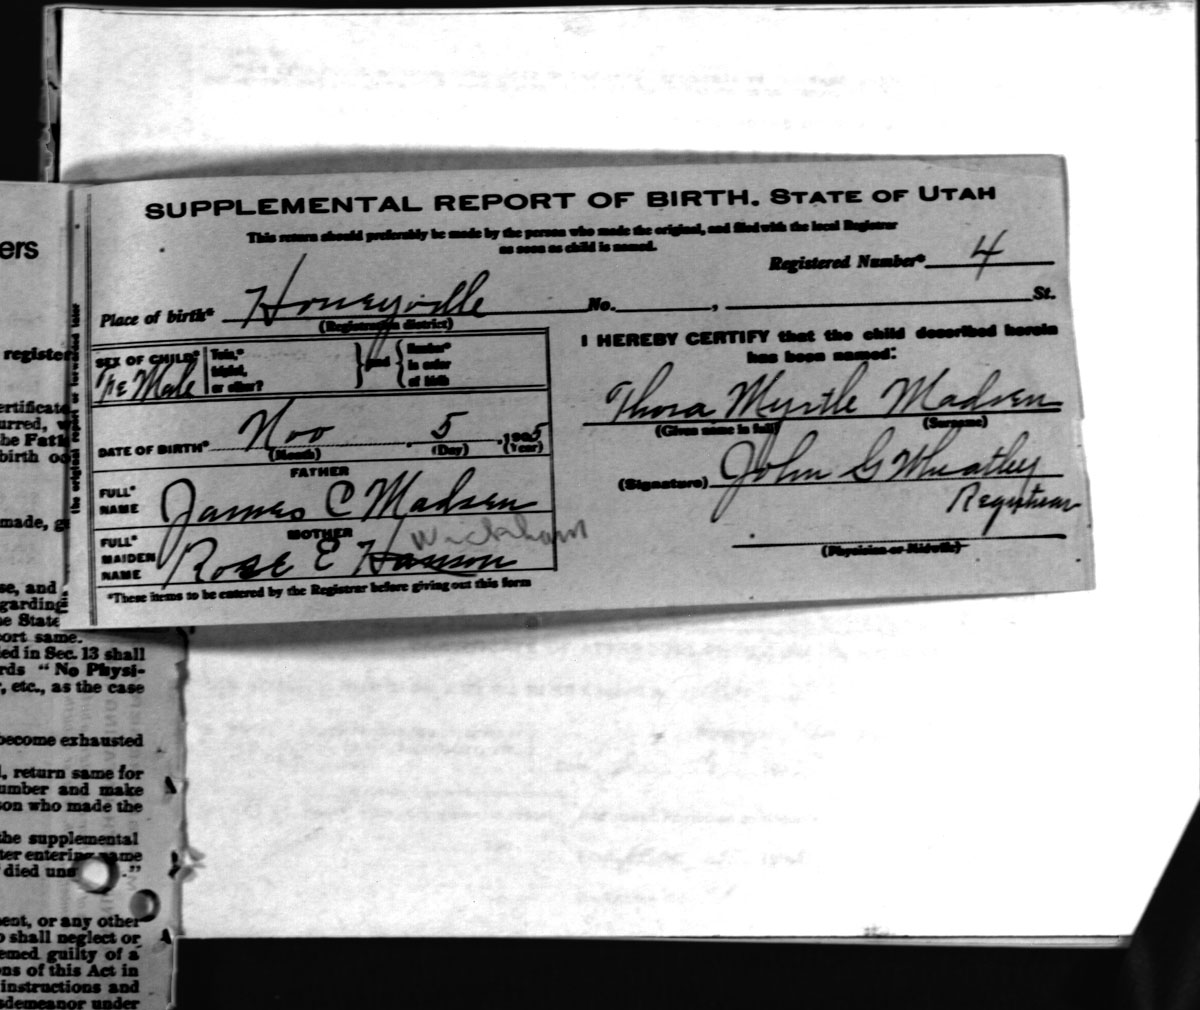 SUPPLEMENTAL REPORT OF BIRTH. STATE OF UTAH
This return should preferably be made by the person who made the original, and filed with the local Registrar
as soon as child is named.
Registered Number* 4
Place of birth* Honeyville No. , St.
(Registration district)
I HEREBY CERTIFY that the child described herein
has been named:
SEX OF CHILD* FeMale
Twin,*
triplet,
or other?
and
Number*
in order
of birth
Thora Myrtle Madsen
(Given name in full) (Surname)
DATE OF BIRTH* Nov 5, 1905
(Month) (Day) (Year)
(Signature) John G Wheatley
Registrar
(Physician or Midwife)
FATHER
FULL*
NAME James C Madsen
MOTHER
FULL*
MAIDEN
NAME Rose E Hanson Wickham
*These items to be entered by the Registrar before giving out this form
the original report or forwarded later
ers
register
ertificate
urred,
he Fath
birth
made,
se, and
garding
e State
port same.
ed in Sec. 13 shall
rds "No Physi-
, etc., as the case
become exhausted
, return same for
umber and make
son who made the
the supplemental
ter entering name
died uns ."
ent, or any other
o shall neglect or
emed guilty of a
ons of this Act in
instructions and
sdemeanor under